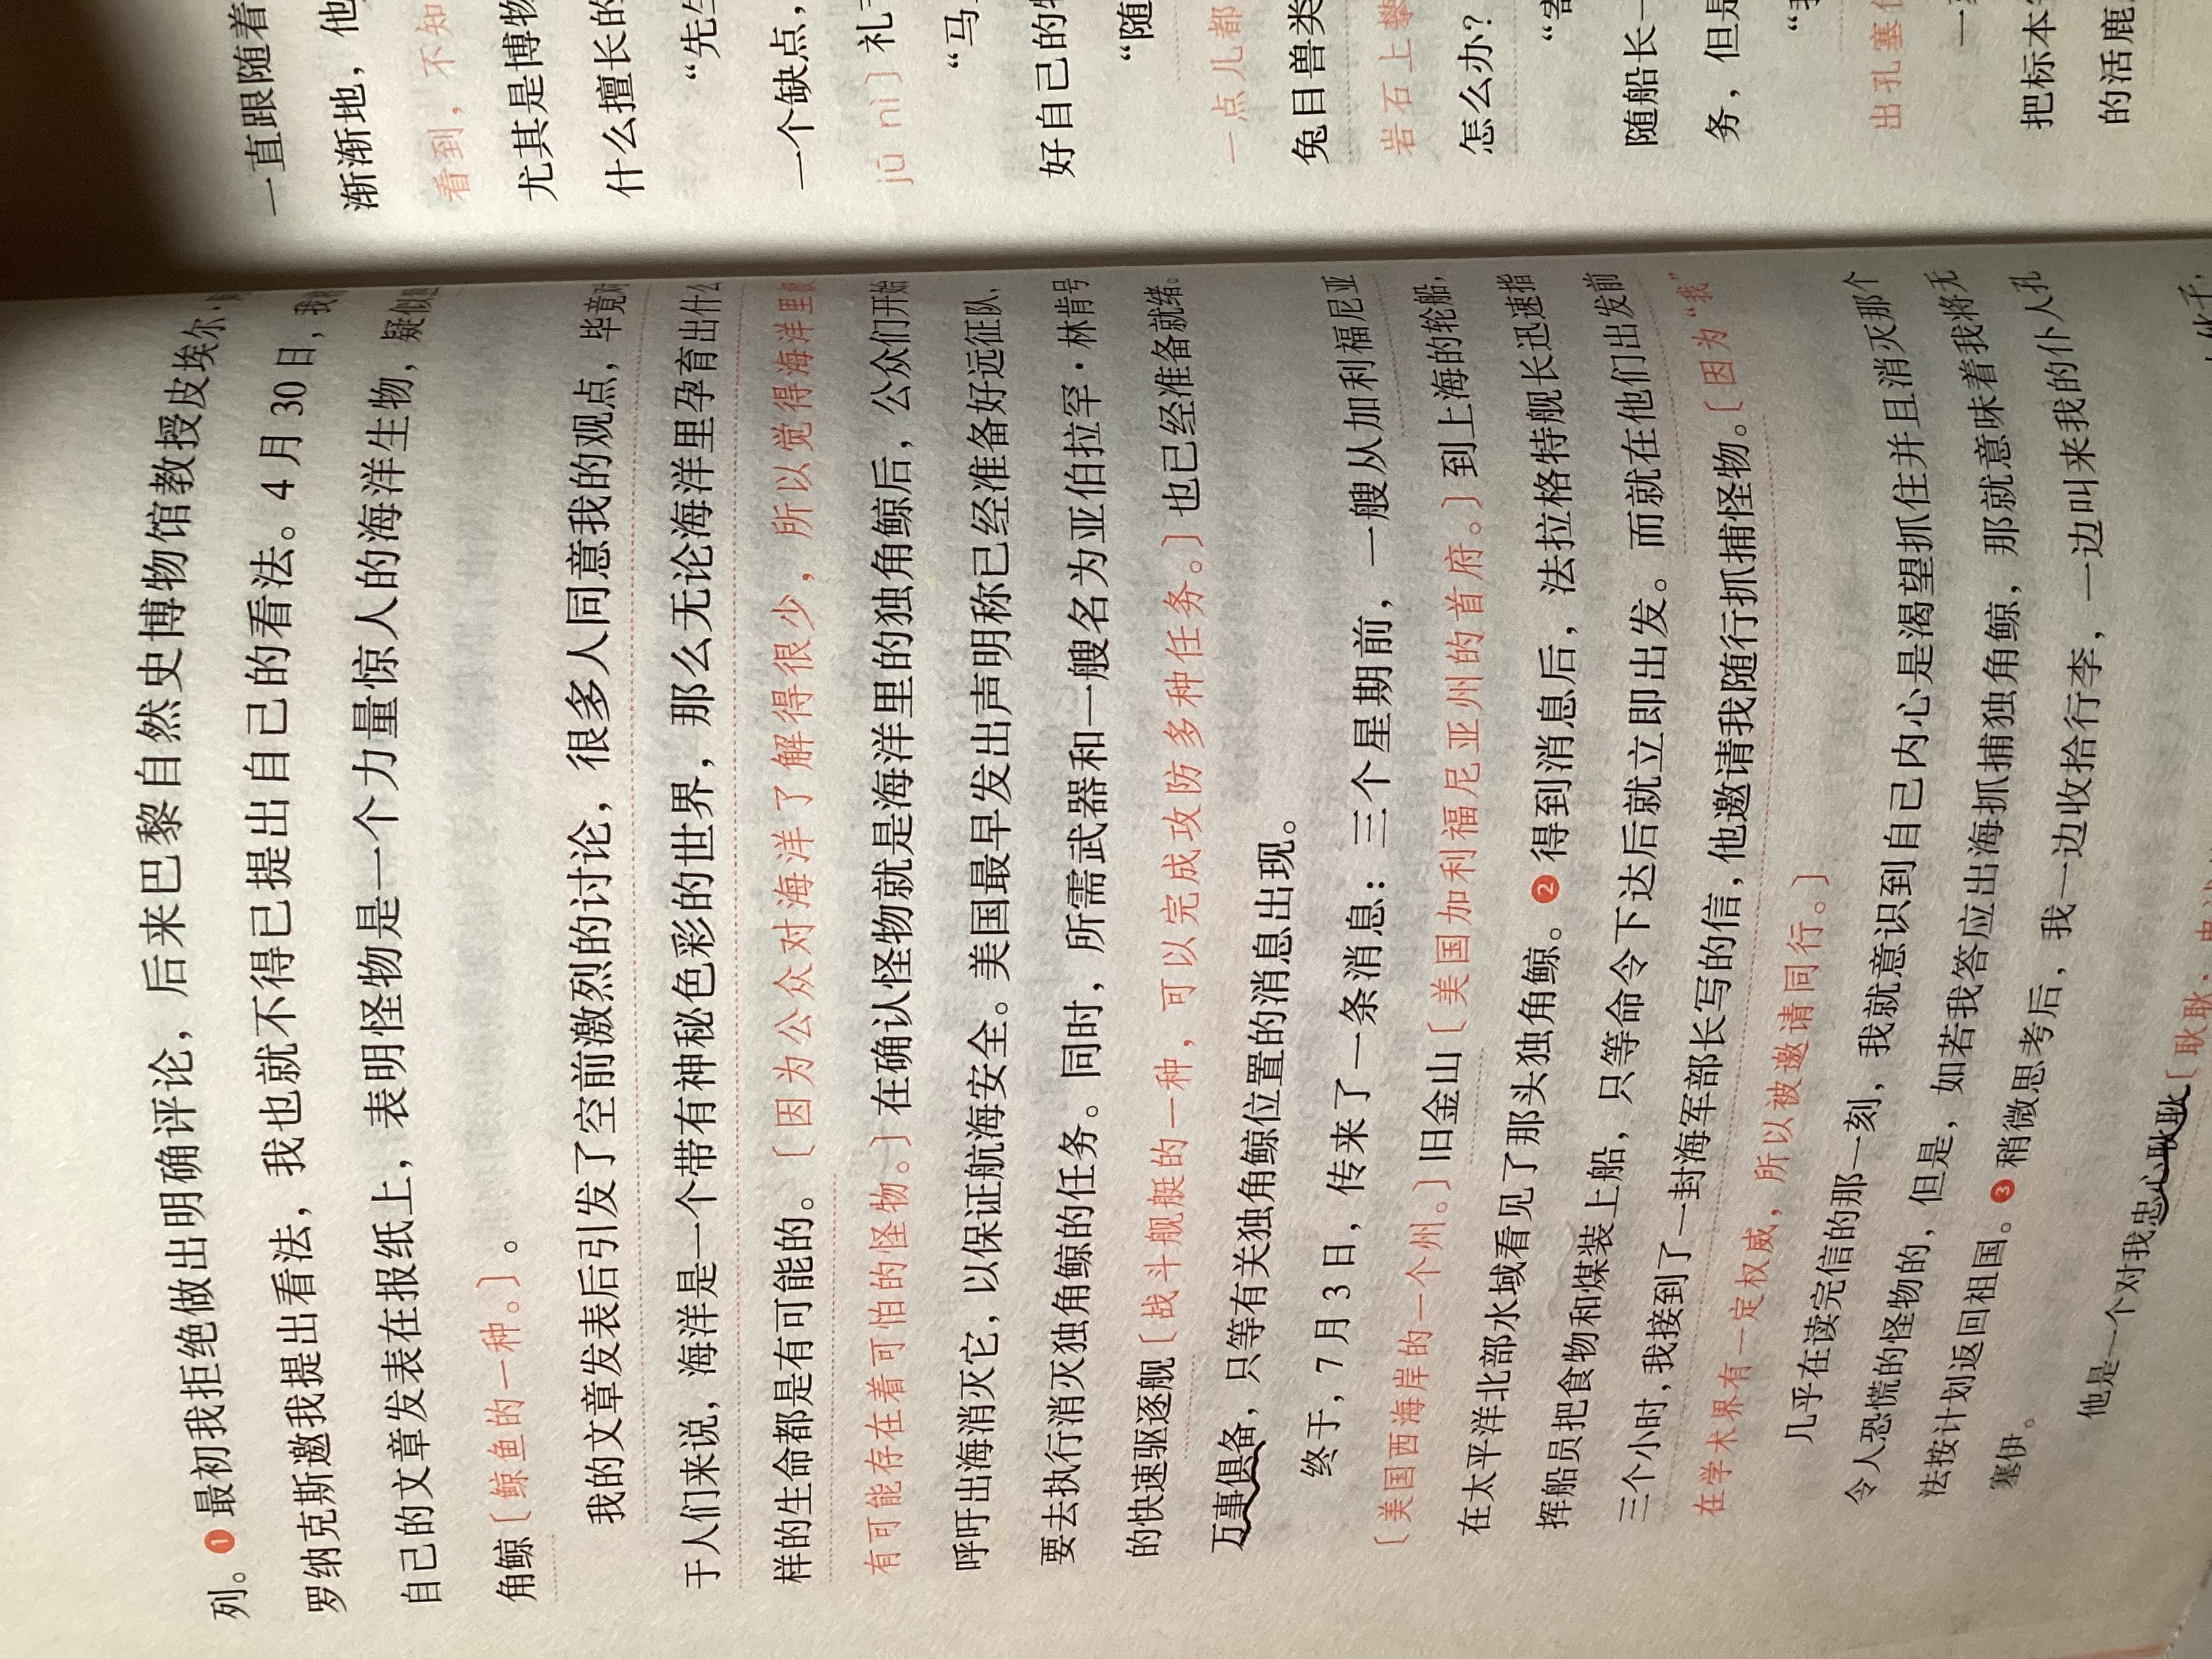 列。❶最初我拒绝做出明确评论，后来巴黎自然史博物馆教授皮埃尔·
罗纳克斯邀我提出看法，我也就不得已提出自己的看法。4月30日，我
自己的文章发表在报纸上，表明怪物是一个力量惊人的海洋生物，疑似
角鲸〔鲸鱼的一种。〕。
我的文章发表后引发了空前激烈的讨论，很多人同意我的观点，毕竟
于人们来说，海洋是一个带有神秘色彩的世界，那么无论海洋里孕育出什么
样的生命都是有可能的。〔因为公众对海洋了解得很少，所以觉得海洋里
有可能存在着可怕的怪物。〕在确认怪物就是海洋里的独角鲸后，公众们开始
呼吁出海消灭它，以保证航海安全。美国最早发出声明称已经准备好远征队，
要去执行消灭独角鲸的任务。同时，所需武器和一艘名为亚伯拉罕·林肯号
的快速驱逐舰〔战斗舰艇的一种，可以完成攻防多种任务。〕也已经准备就绪。
万事俱备，只等有关独角鲸位置的消息出现。
终于，7月3日，传来了一条消息：三个星期前，一艘从加利福尼亚
〔美国西海岸的一个州。〕旧金山〔美国加利福尼亚州的首府。〕到上海的轮船，
在太平洋北部水域看见了那头独角鲸。❷得到消息后，法拉格特舰长迅速指
挥船员把食物和煤装上船，只等命令下达后就立即出发。而就在他们出发前
三个小时，我接到了一封海军部长写的信，他邀请我随行抓捕怪物。〔因为“我”
在学术界有一定权威，所以被邀请同行。〕
几乎在读完信的那一刻，我就意识到自己内心是渴望抓住并且消灭那个
令人恐慌的怪物的，但是，如若我答应出海抓捕独角鲸，那就意味着我将无
法按计划返回祖国。❸稍微思考后，我一边收拾行李，一边叫来我的仆人孔
塞伊。
他是一个对我忠心耿耿〔耿耿：忠诚
一直跟随着
渐渐地，他
看到，不知
尤其是博物
什么擅长的
“先生
一个缺点，
jū nì〕礼
“马
好自己的
“随
一点儿都
兔目兽类
岩石上攀
怎么办？
“寄
随船长一
务，但是
“我
出孔塞
一
把标本
的活鹿